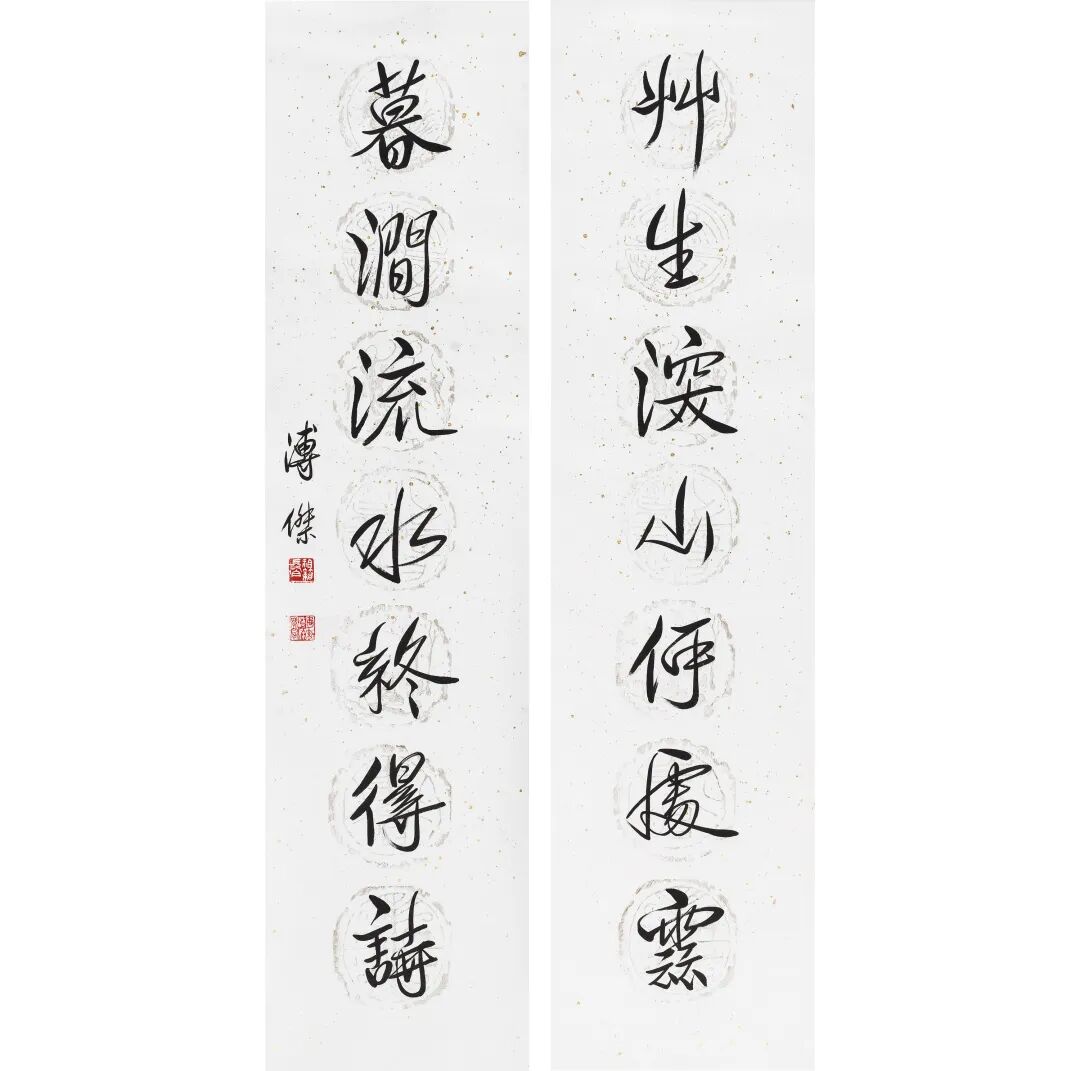 艸生深山何處雲
暮澗流水終得詩
溥傑